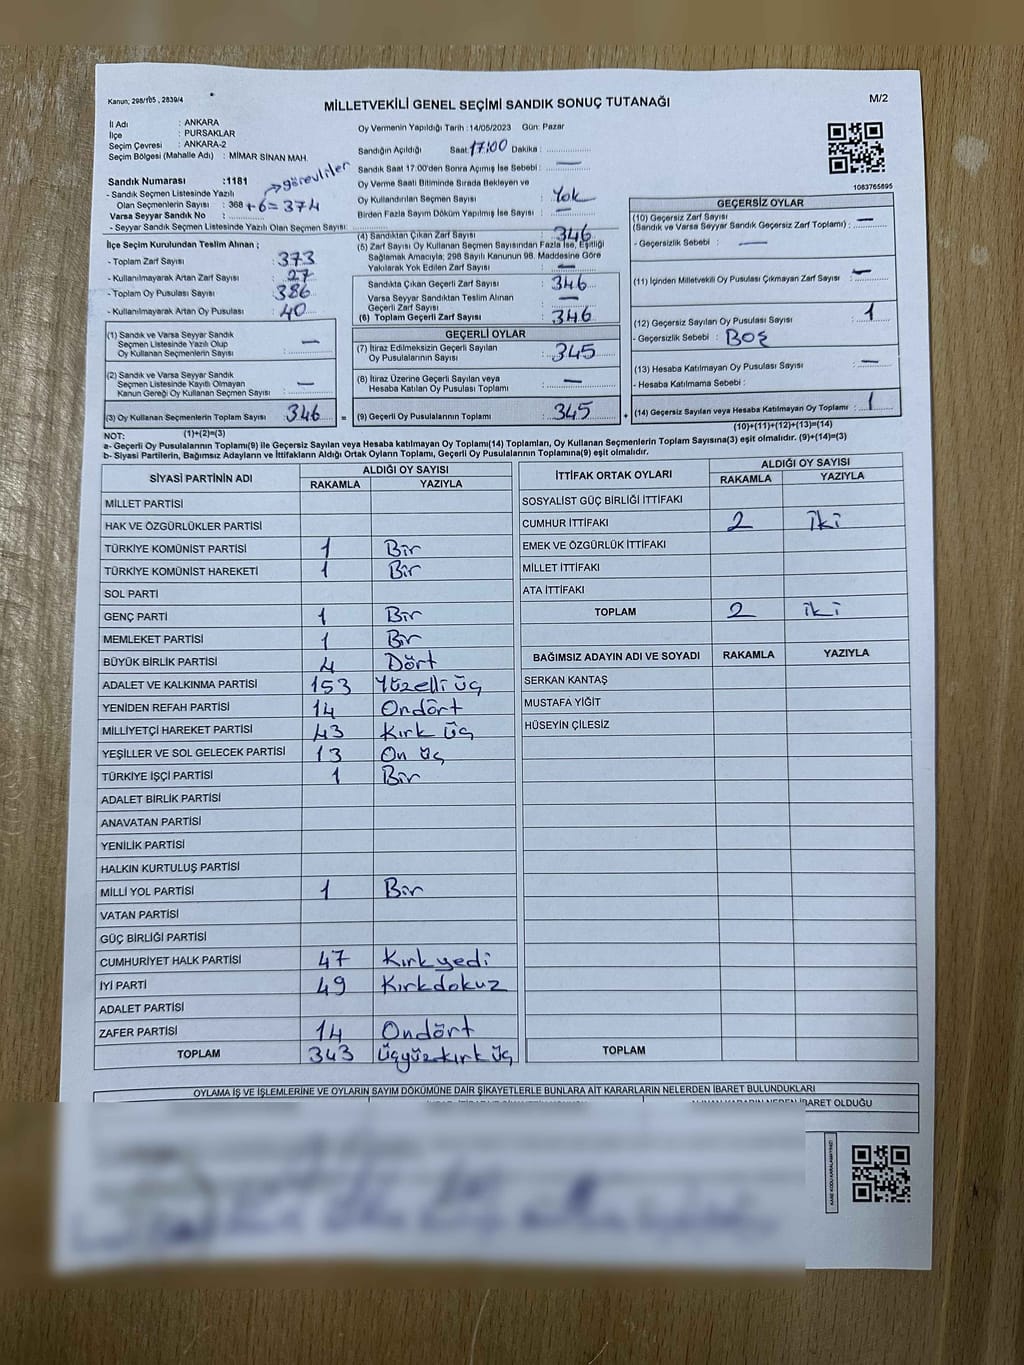 Kanun; 298/105 , 2839/4
MİLLETVEKİLİ GENEL SEÇİMİ SANDIK SONUÇ TUTANAĞI
M/2
İl Adı : ANKARA
İlçe : PURSAKLAR
Seçim Çevresi : ANKARA-2
Seçim Bölgesi (Mahalle Adı) : MİMAR SİNAN MAH.
Sandık Numarası :1181
- Sandık Seçmen Listesinde Yazılı
Olan Seçmenlerin Sayısı : 368 +6=374 → görevliler
Varsa Seyyar Sandık No :
- Seyyar Sandık Seçmen Listesinde Yazılı Olan Seçmen Sayısı:
Oy Vermenin Yapıldığı Tarih :14/05/2023 Gün: Pazar
Sandığın Açıldığı Saat:17:00 Dakika :
Sandık Saat 17:00'den Sonra Açımış İse Sebebi : —
Oy Verme Saati Bitiminde Sırada Bekleyen ve
Oy Kullandırılan Seçmen Sayısı : Yok
Birden Fazla Sayım Döküm Yapılmış İse Sayısı : —
1083765895
İlçe Seçim Kurulundan Teslim Alınan ;
- Toplam Zarf Sayısı : 373
- Kullanılmayarak Artan Zarf Sayısı : 27
- Toplam Oy Pusulası Sayısı : 386
- Kullanılmayarak Artan Oy Pusulası : 40
(1) Sandık ve Varsa Seyyar Sandık
Seçmen Listesinde Yazılı Olup
Oy Kullanan Seçmenlerin Sayısı : —
(2) Sandık ve Varsa Seyyar Sandık
Seçmen Listesinde Kayıtlı Olmayan
Kanun Gereği Oy Kullanan Seçmen Sayısı : —
(3) Oy Kullanan Seçmenlerin Toplam Sayısı : 346 =
(1)+(2)=(3)
(4) Sandıktan Çıkan Zarf Sayısı : 346
(5) Zarf Sayısı Oy Kullanan Seçmen Sayısından Fazla İse, Eşitliği
Sağlamak Amacıyla; 298 Sayılı Kanunun 98. Maddesine Göre
Yakılarak Yok Edilen Zarf Sayısı : —
Sandıkta Çıkan Geçerli Zarf Sayısı : 346
Varsa Seyyar Sandıktan Teslim Alınan
Geçerli Zarf Sayısı : —
(6) Toplam Geçerli Zarf Sayısı : 346
GEÇERLİ OYLAR
(7) İtiraz Edilmeksizin Geçerli Sayılan
Oy Pusulalarının Sayısı : 345
(8) İtiraz Üzerine Geçerli Sayılan veya
Hesaba Katılan Oy Pusulası Toplamı : —
(9) Geçerli Oy Pusulalarının Toplamı : 345 +
GEÇERSİZ OYLAR
(10) Geçersiz Zarf Sayısı
(Sandık ve Varsa Seyyar Sandık Geçersiz Zarf Toplamı) : —
- Geçersizlik Sebebi : —
(11) İçinden Milletvekili Oy Pusulası Çıkmayan Zarf Sayısı : —
(12) Geçersiz Sayılan Oy Pusulası Sayısı : 1
- Geçersizlik Sebebi : BOŞ
(13) Hesaba Katılmayan Oy Pusulası Sayısı : —
- Hesaba Katılmama Sebebi :
(14) Geçersiz Sayılan veya Hesaba Katılmayan Oy Toplamı : 1
(10)+(11)+(12)+(13)=(14)
NOT:
a- Geçerli Oy Pusulalarının Toplamı(9) ile Geçersiz Sayılan veya Hesaba katılmayan Oy Toplamı(14) Toplamları, Oy Kullanan Seçmenlerin Toplam Sayısına(3) eşit olmalıdır. (9)+(14)=(3)
b- Siyasi Partilerin, Bağımsız Adayların ve İttifakların Aldığı Ortak Oyların Toplamı, Geçerli Oy Pusulalarının Toplamına(9) eşit olmalıdır.
SİYASİ PARTİNİN ADI ALDIĞI OY SAYISI
RAKAMLA YAZIYLA
MİLLET PARTİSİ
HAK VE ÖZGÜRLÜKLER PARTİSİ
TÜRKİYE KOMÜNİST PARTİSİ 1 Bir
TÜRKİYE KOMÜNİST HAREKETİ 1 Bir
SOL PARTİ
GENÇ PARTİ 1 Bir
MEMLEKET PARTİSİ 1 Bir
BÜYÜK BİRLİK PARTİSİ 4 Dört
ADALET VE KALKINMA PARTİSİ 153 Yüzelli üç
YENİDEN REFAH PARTİSİ 14 Ondört
MİLLİYETÇİ HAREKET PARTİSİ 43 Kırk üç
YEŞİLLER VE SOL GELECEK PARTİSİ 13 On üç
TÜRKİYE İŞÇİ PARTİSİ 1 Bir
ADALET BİRLİK PARTİSİ
ANAVATAN PARTİSİ
YENİLİK PARTİSİ
HALKIN KURTULUŞ PARTİSİ
MİLLİ YOL PARTİSİ 1 Bir
VATAN PARTİSİ
GÜÇ BİRLİĞİ PARTİSİ
CUMHURİYET HALK PARTİSİ 47 Kırkyedi
İYİ PARTİ 49 Kırkdokuz
ADALET PARTİSİ
ZAFER PARTİSİ 14 Ondört
TOPLAM 343 Üçyüzkırk üç
İTTİFAK ORTAK OYLARI ALDIĞI OY SAYISI
RAKAMLA YAZIYLA
SOSYALİST GÜÇ BİRLİĞİ İTTİFAKI
CUMHUR İTTİFAKI 2 İki
EMEK VE ÖZGÜRLÜK İTTİFAKI
MİLLET İTTİFAKI
ATA İTTİFAKI
TOPLAM 2 iki
BAĞIMSIZ ADAYIN ADI VE SOYADI RAKAMLA YAZIYLA
SERKAN KANTAŞ
MUSTAFA YİĞİT
HÜSEYİN ÇİLESİZ
TOPLAM
OYLAMA İŞ VE İŞLEMLERİNE VE OYLARIN SAYIM DÖKÜMÜNE DAİR ŞİKAYETLERLE BUNLARA AİT KARARLARIN NELERDEN İBARET BULUNDUKLARI
İBARET OLDUĞU